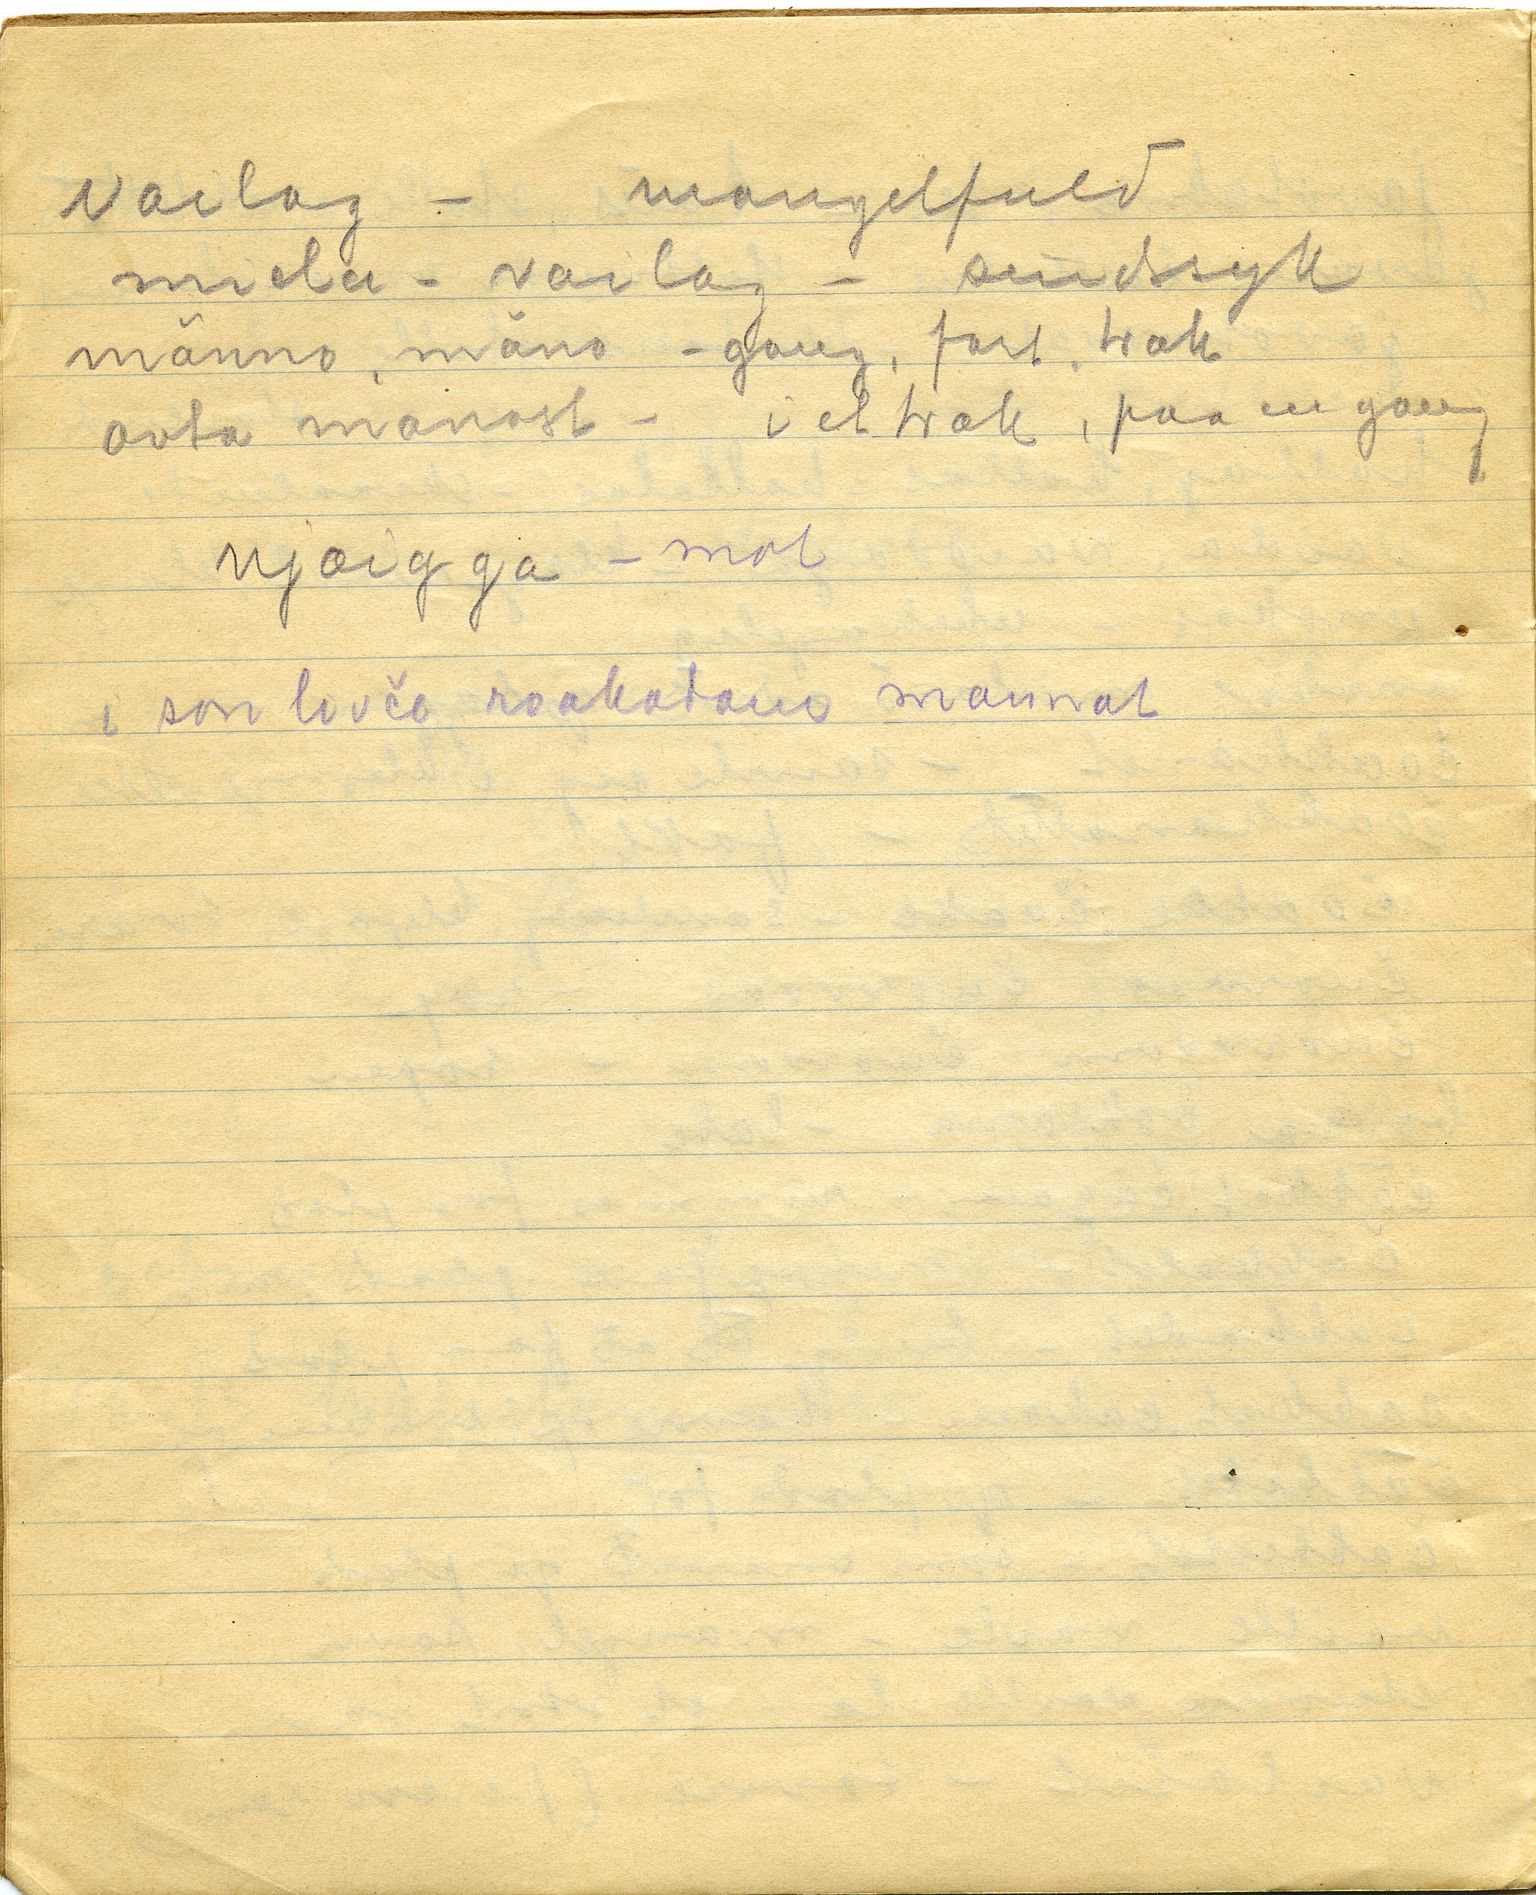 vailag - mangelfuld
miela - vailag - sindssyk
männo, mäno - gang, fart, trak
ovta manost - i et trak, paa en gang
njæigga - mot
i son lovče roakadano mannat